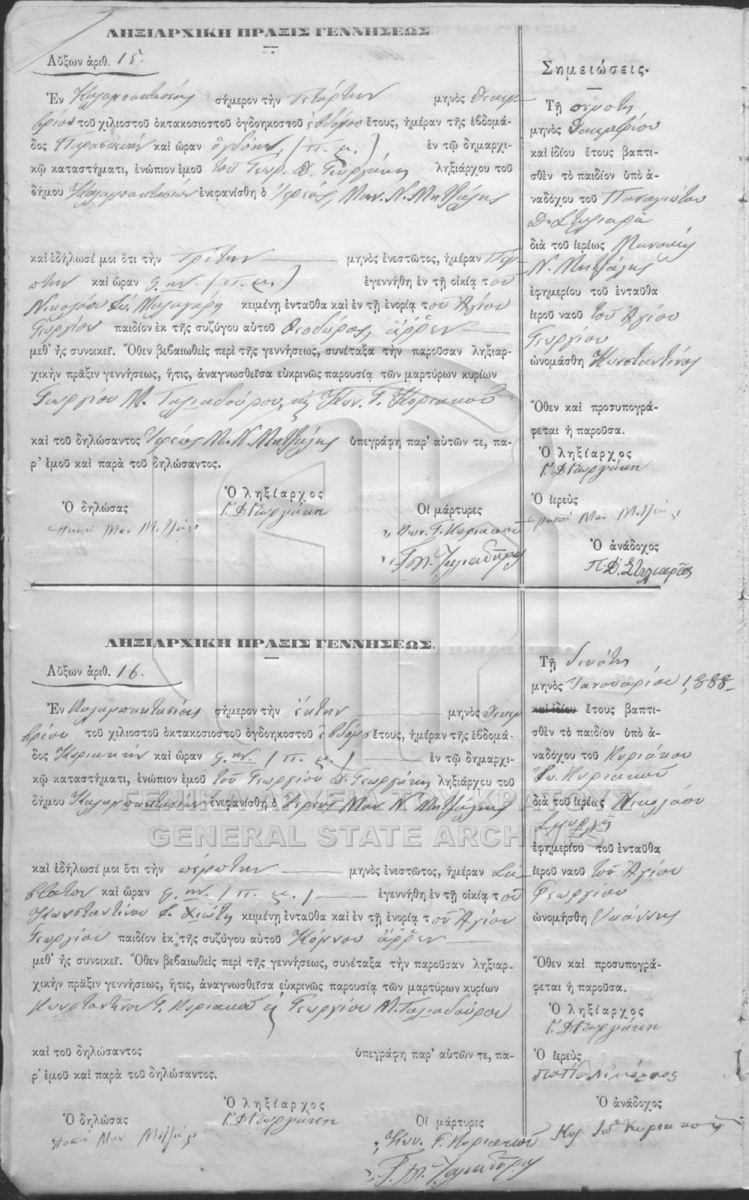 ΛΗΞΙΑΡΧΙΚΗ ΠΡΑΞΙΣ ΓΕΝΝΗΣΕΩΣ
Αὔξων ἀριθ. 15.
Ἐν σήμερον τὴν τετάρτην μηνὸς Δεκεμ-
βρίου τοῦ χιλιοστοῦ ὀκτακοσιοστοῦ ὀγδοηκοστοῦ ἑβδόμου ἔτους, ἡμέραν τῆς ἑβδομά-
δος Παρασκευὴν καὶ ὥραν ὀγδόην (π. μ.) ἐν τῷ δημαρχι-
κῷ καταστήματι, ἐνώπιον ἐμοῦ τοῦ Γεωρ. Δ. Γεωργάκη ληξιάρχου τοῦ
δήμου ἐνεφανίσθη ὁ Ἱερεὺς Μαν. Ν.
καὶ ἐδήλωσέ μοι ὅτι τὴν τρίτην μηνὸς ἐνεστῶτος, ἡμέραν Πέμ-
πτην καὶ ὥραν 9. ην. (π. μ.) ἐγεννήθη ἐν τῇ οἰκίᾳ τοῦ
Νικολάου κειμένῃ ἐνταῦθα καὶ ἐν τῇ ἐνορίᾳ τοῦ Ἁγίου
Γεωργίου παιδίον ἐκ τῆς συζύγου αὐτοῦ Θεοδώρας ἄρρεν
μεθ' ἧς συνοικεῖ. Ὅθεν βεβαιωθεὶς περὶ τῆς γεννήσεως, συνέταξα τὴν παροῦσαν ληξιαρ-
χικὴν πρᾶξιν γεννήσεως, ἥτις, ἀναγνωσθεῖσα εὐκρινῶς παρουσίᾳ τῶν μαρτύρων κυρίων
Γεωργίου Μ. Ταλιαδούρου, κ Κων. Γ. Κυριακοῦ
καὶ τοῦ δηλώσαντος Ἱερέως Μ. Ν. ὑπεγράφη παρ' αὐτῶν τε, πα-
ρ' ἐμοῦ καὶ παρὰ τοῦ δηλώσαντος.
Ὁ δηλώσας Ὁ ληξίαρχος Οἱ μάρτυρες
Μαν. Γ. Δ Γεωργάκη Κων. Γ. Κυριακοῦ
Γ. Μ. Ταλιαδοῦρος
Σημειώσεις.
Τῇ πρώτῃ
μηνὸς
καὶ ἰδίου ἔτους βαπτι-
σθὲν τὸ παιδίον ὑπὸ ἀ-
ναδόχου τοῦ Παναγιώτου
Δ.
διὰ τοῦ ἱερέως
Ν.
ἐφημερίου τοῦ ἐνταῦθα
ἱεροῦ ναοῦ τοῦ Ἁγίου
Γεωργίου
ὠνομάσθη Κωνσταντῖνος
Ὅθεν καὶ προσυπογρά-
φεται ἡ παροῦσα.
Ὁ ληξίαρχος
Γ. Δ Γεωργάκη
Ὁ ἱερεὺς
Μαν.
Ὁ ἀνάδοχος
Π. Δ.
ΛΗΞΙΑΡΧΙΚΗ ΠΡΑΞΙΣ ΓΕΝΝΗΣΕΩΣ.
Αὔξων ἀριθ. 16.
Ἐν σήμερον τὴν ἕκτην μηνὸς Δεκεμ-
βρίου τοῦ χιλιοστοῦ ὀκτακοσιοστοῦ ὀγδοηκοστοῦ ἑβδόμου ἔτους, ἡμέραν τῆς ἑβδομά-
δος Κυριακὴν καὶ ὥραν 9. ην. (π. μ.) ἐν τῷ δημαρχι-
κῷ καταστήματι, ἐνώπιον ἐμοῦ τοῦ Γεωργίου Δ. Γεωργάκη ληξιάρχου τοῦ
δήμου ἐνεφανίσθη ὁ Ἱερεὺς Μαν. Ν.
καὶ ἐδήλωσέ μοι ὅτι τὴν πέμπτην μηνὸς ἐνεστῶτος, ἡμέραν Σά-
ββατον καὶ ὥραν 9. ην. (π. μ.) ἐγεννήθη ἐν τῇ οἰκίᾳ τοῦ
Κωνσταντίνου κειμένῃ ἐνταῦθα καὶ ἐν τῇ ἐνορίᾳ τοῦ Ἁγίου
Γεωργίου παιδίον ἐκ τῆς συζύγου αὐτοῦ ἄρρεν
μεθ' ἧς συνοικεῖ. Ὅθεν βεβαιωθεὶς περὶ τῆς γεννήσεως, συνέταξα τὴν παροῦσαν ληξιαρ-
χικὴν πρᾶξιν γεννήσεως, ἥτις, ἀναγνωσθεῖσα εὐκρινῶς παρουσίᾳ τῶν μαρτύρων κυρίων
Κωνσταντίνου Γ. Κυριακοῦ κ Γεωργίου Μ. Ταλιαδούρου
καὶ τοῦ δηλώσαντος ὑπεγράφη παρ' αὐτῶν τε, πα-
ρ' ἐμοῦ καὶ παρὰ τοῦ δηλώσαντος.
Ὁ δηλώσας Ὁ ληξίαρχος Οἱ μάρτυρες
Μαν. Γ. Δ Γεωργάκη Κων. Γ. Κυριακοῦ
Γ. Μ. Ταλιαδοῦρος
Τῇ
μηνὸς Ἰανουαρίου 1888
καὶ ἰδίου ἔτους βαπτι-
σθὲν τὸ παιδίον ὑπὸ ἀ-
ναδόχου τοῦ Κυριάκου
Κυριακοῦ
διὰ τοῦ ἱερέως Νικολάου
ἐφημερίου τοῦ ἐνταῦθα
ἱεροῦ ναοῦ τοῦ Ἁγίου
Γεωργίου
ὠνομήσθη Ἰωάννης
Ὅθεν καὶ προσυπογρά-
φεται ἡ παροῦσα.
Ὁ ληξίαρχος
Γ. Δ Γεωργάκη
Ὁ ἱερεὺς
Ὁ ἀνάδοχος
Κυριακοῦ
ΓΕΝΙΚΑ ΑΡΧΕΙΑ ΤΟΥ ΚΡΑΤΟΥΣ
GENERAL STATE ARCHIVES